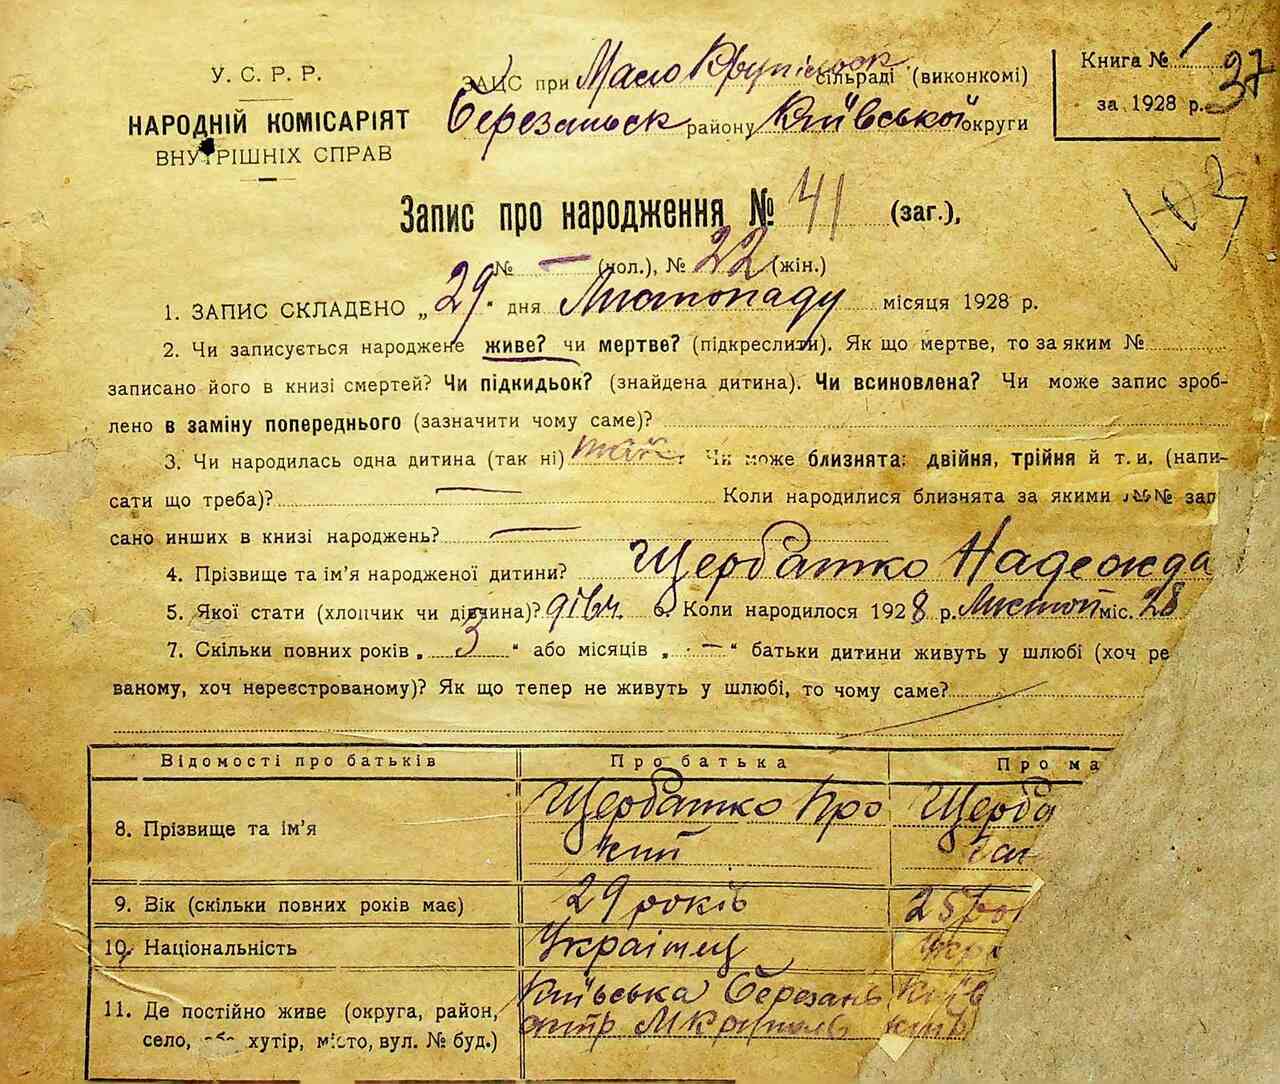 У. С. Р. Р.
НАРОДНІЙ КОМІСАРІЯТ
ВНУТРІШНІХ СПРАВ
ЗАЦС при Мало Крупільск сільраді (виконкомі)
Березаньск району Київської округи
Книга № 1
за 1928 р.
37
103
Запис про народження № 41 (заг.),
№ — (чол.), № 22 (жін.)
1. ЗАПИС СКЛАДЕНО „29" дня Листопаду місяця 1928 р.
2. Чи записується народжене живе? чи мертве? (підкреслити). Як що мертве, то за яким №
записано його в книзі смертей? Чи підкидьок? (знайдена дитина). Чи всиновлена? Чи може запис зроб-
лено в заміну попереднього (зазначити чому саме)?
3. Чи народилась одна дитина (так ні) так. Чи може близнята: двійня, трійня й т. и. (напи-
сати що треба)? — Коли народилися близнята за якими №№ зап
сано инших в книзі народжень? —
4. Прізвище та ім'я народженої дитини? Щербатко Надежда
5. Якої стати (хлопчик чи дівчина)? дівч. 6. Коли народилося 1928 р. Листоп міс. 28
7. Скільки повних років „ 3 " або місяців „ — " батьки дитини живуть у шлюбі (хоч ре
ваному, хоч нереєстрованому)? Як що тепер не живуть у шлюбі, то чому саме?
Відомості про батьків Про батька Про ма
8. Прізвище та ім'я Щербатко Про Щерба
кип
9. Вік (скільки повних років має) 29 років 25 рок
10. Національність Украінец Укра
11. Де постійно живе (округа, район, Київська Березань Київ
село, або хутір, місто, вул. № буд.)